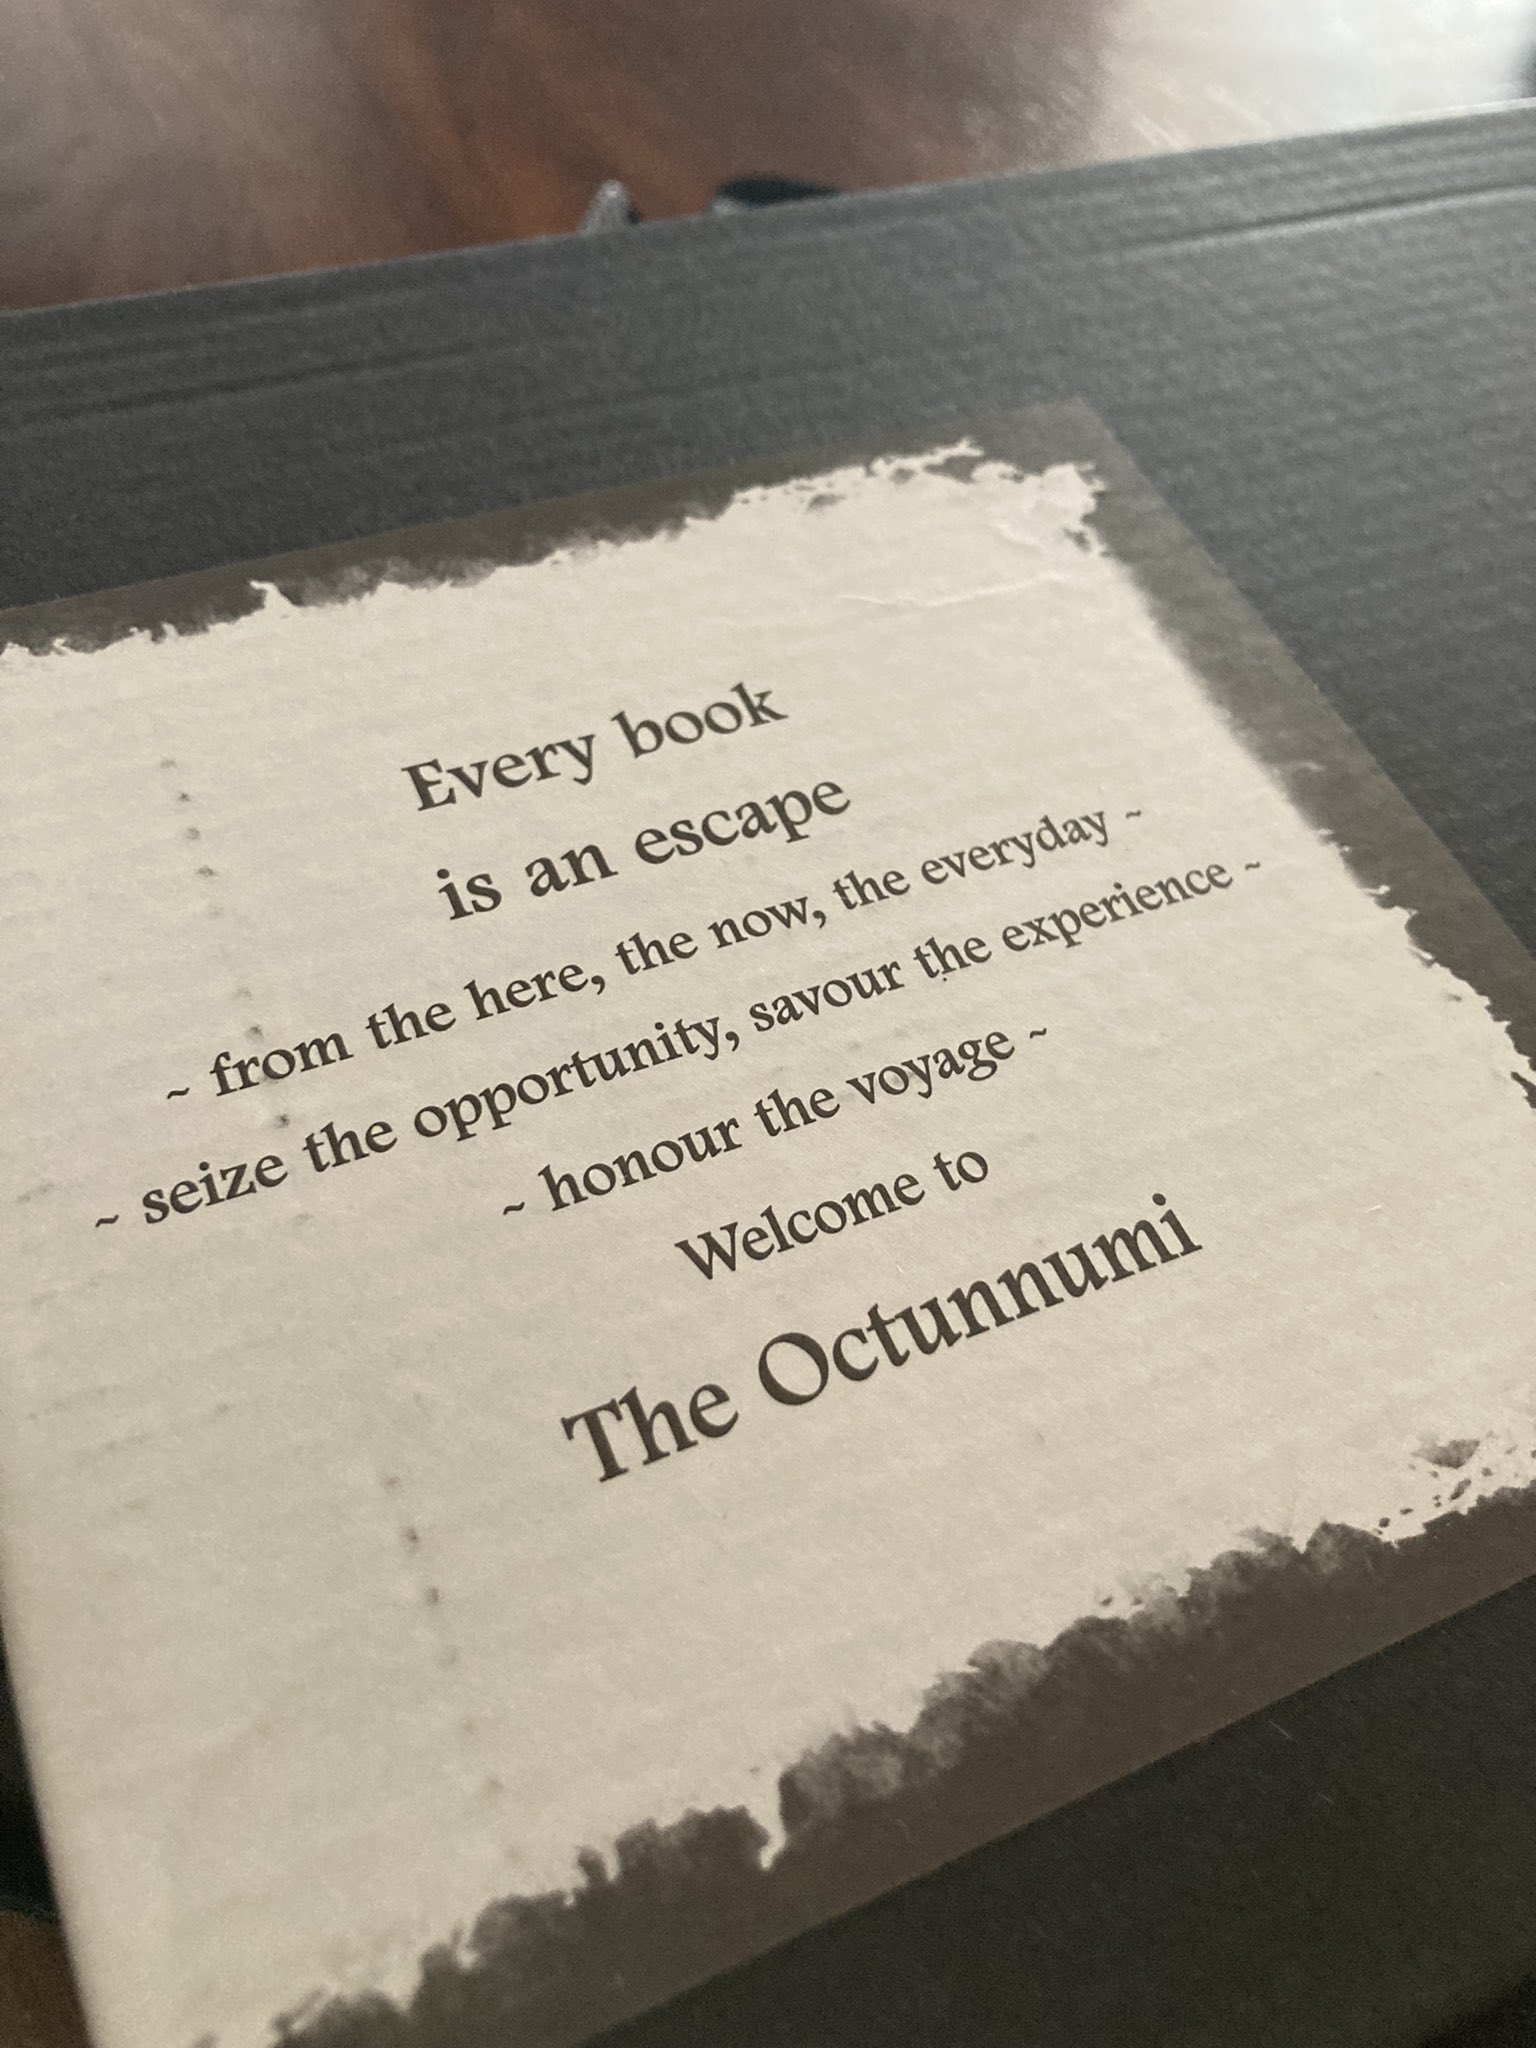 Every book
is an escape
~ from the here, the now, the everyday ~
~ seize the opportunity, savour the experience ~
~ honour the voyage ~
Welcome to
The Octunnumi